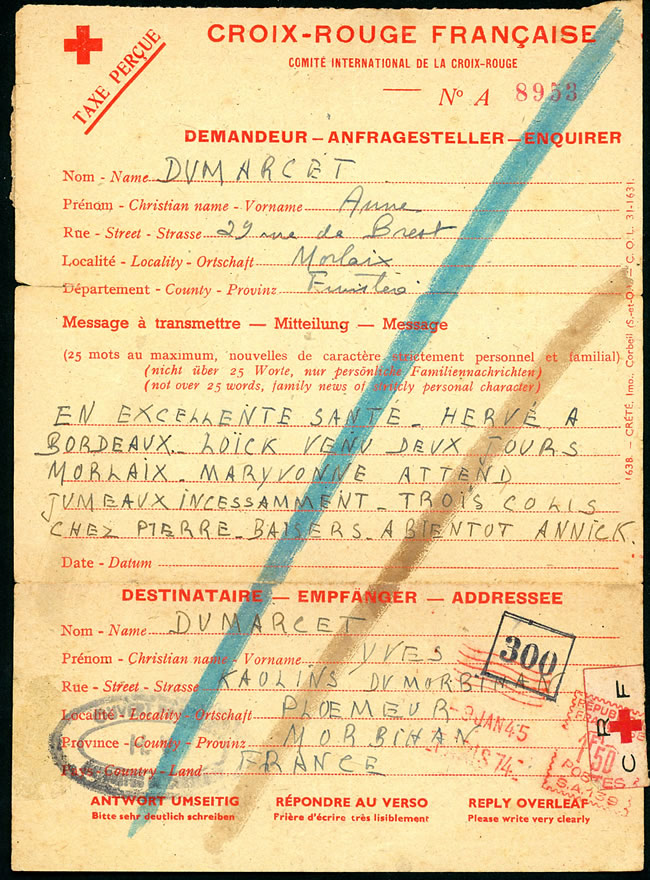 CROIX-ROUGE FRANÇAISE
COMITÉ INTERNATIONAL DE LA CROIX-ROUGE
TAXE PERÇUE
Nº A 8953
DEMANDEUR – ANFRAGESTELLER – ENQUIRER
Nom - Name DUMARCET
Prénom - Christian name - Vorname Anne
Rue - Street - Strasse 29 rue de Brest
Localité - Locality - Ortschaft Morlaix
Département - County - Provinz Finistère
Message à transmettre — Mitteilung — Message
(25 mots au maximum, nouvelles de caractère strictement personnel et familial)
(nicht über 25 Worte, nur persönliche Familiennachrichten)
(not over 25 words, family news of strictly personal character)
EN EXCELLENTE SANTE _ HERVÉ A
BORDEAUX _ LOÏCK VENU DEUX JOURS
MORLAIX _ MARYVONNE ATTEND
JUMEAUX INCESSAMMENT _ TROIS COLIS
CHEZ PIERRE _ BAISERS _ A BIENTOT ANNICK.
Date - Datum
DESTINATAIRE — EMPFÄNGER — ADDRESSEE
Nom - Name DUMARCET
Prénom - Christian name - Vorname YVES
300
Rue - Street - Strasse KAOLINS DU MORBIHAN
Localité - Locality - Ortschaft PLOEMEUR
-9 JAN 45
Province - County - Provinz MORBIHAN
Pays - Country - Land FRANCE
C R F
1F50
POSTES
S.A.159
ANTWORT UMSEITIG RÉPONDRE AU VERSO REPLY OVERLEAF
Bitte sehr deutlich schreiben Prière d'écrire très lisiblement Please write very clearly
1638. — CRÉTÉ, Imp., Corbeil (S.-et-O.) — C. O. L. 31-1631